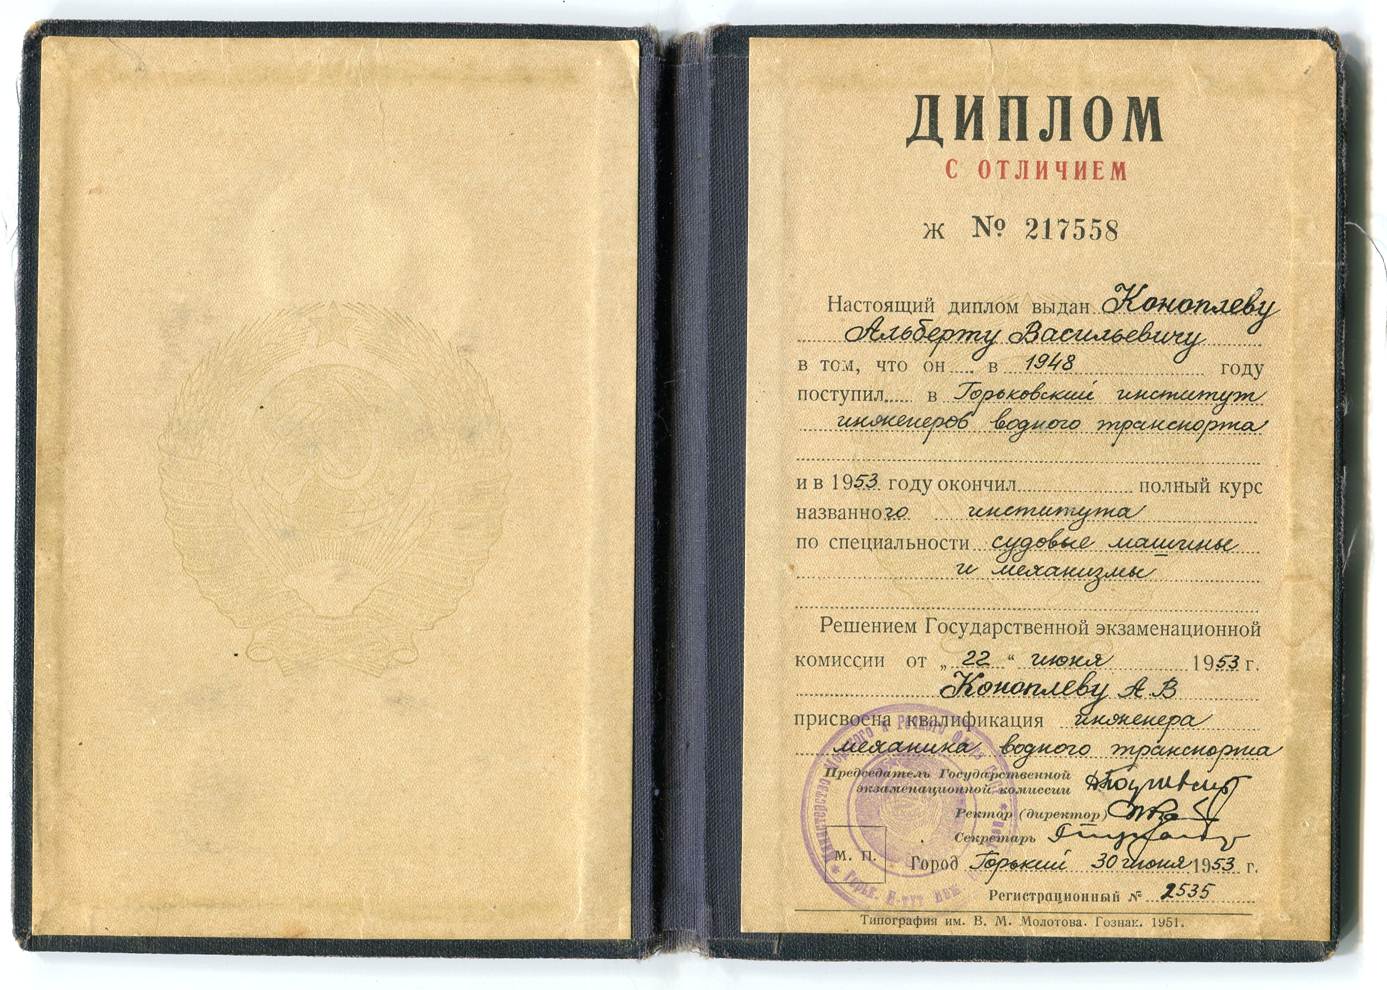 ДИПЛОМ
С ОТЛИЧИЕМ
Ж № 217558
Настоящий диплом выдан Коноплеву
Альберту Васильевичу
в том, что он в 1948 году
поступил в Горьковский институт
инженеров водного транспорта
и в 1953 году окончил полный курс
названного института
по специальности судовые машины
и механизмы
Решением Государственной экзаменационной
комиссии от „22“ июня 1953 г.
Коноплеву А В
присвоена квалификация инженера
механика водного транспорта
Председатель Государственной
экзаменационной комиссии
Ректор (директор)
Секретарь
М. П.
Город Горький 30 июня 1953 г.
Регистрационный № 2535
Типография им. В. М. Молотова. Гознак. 1951.
Министерство Морского и Речного Флота